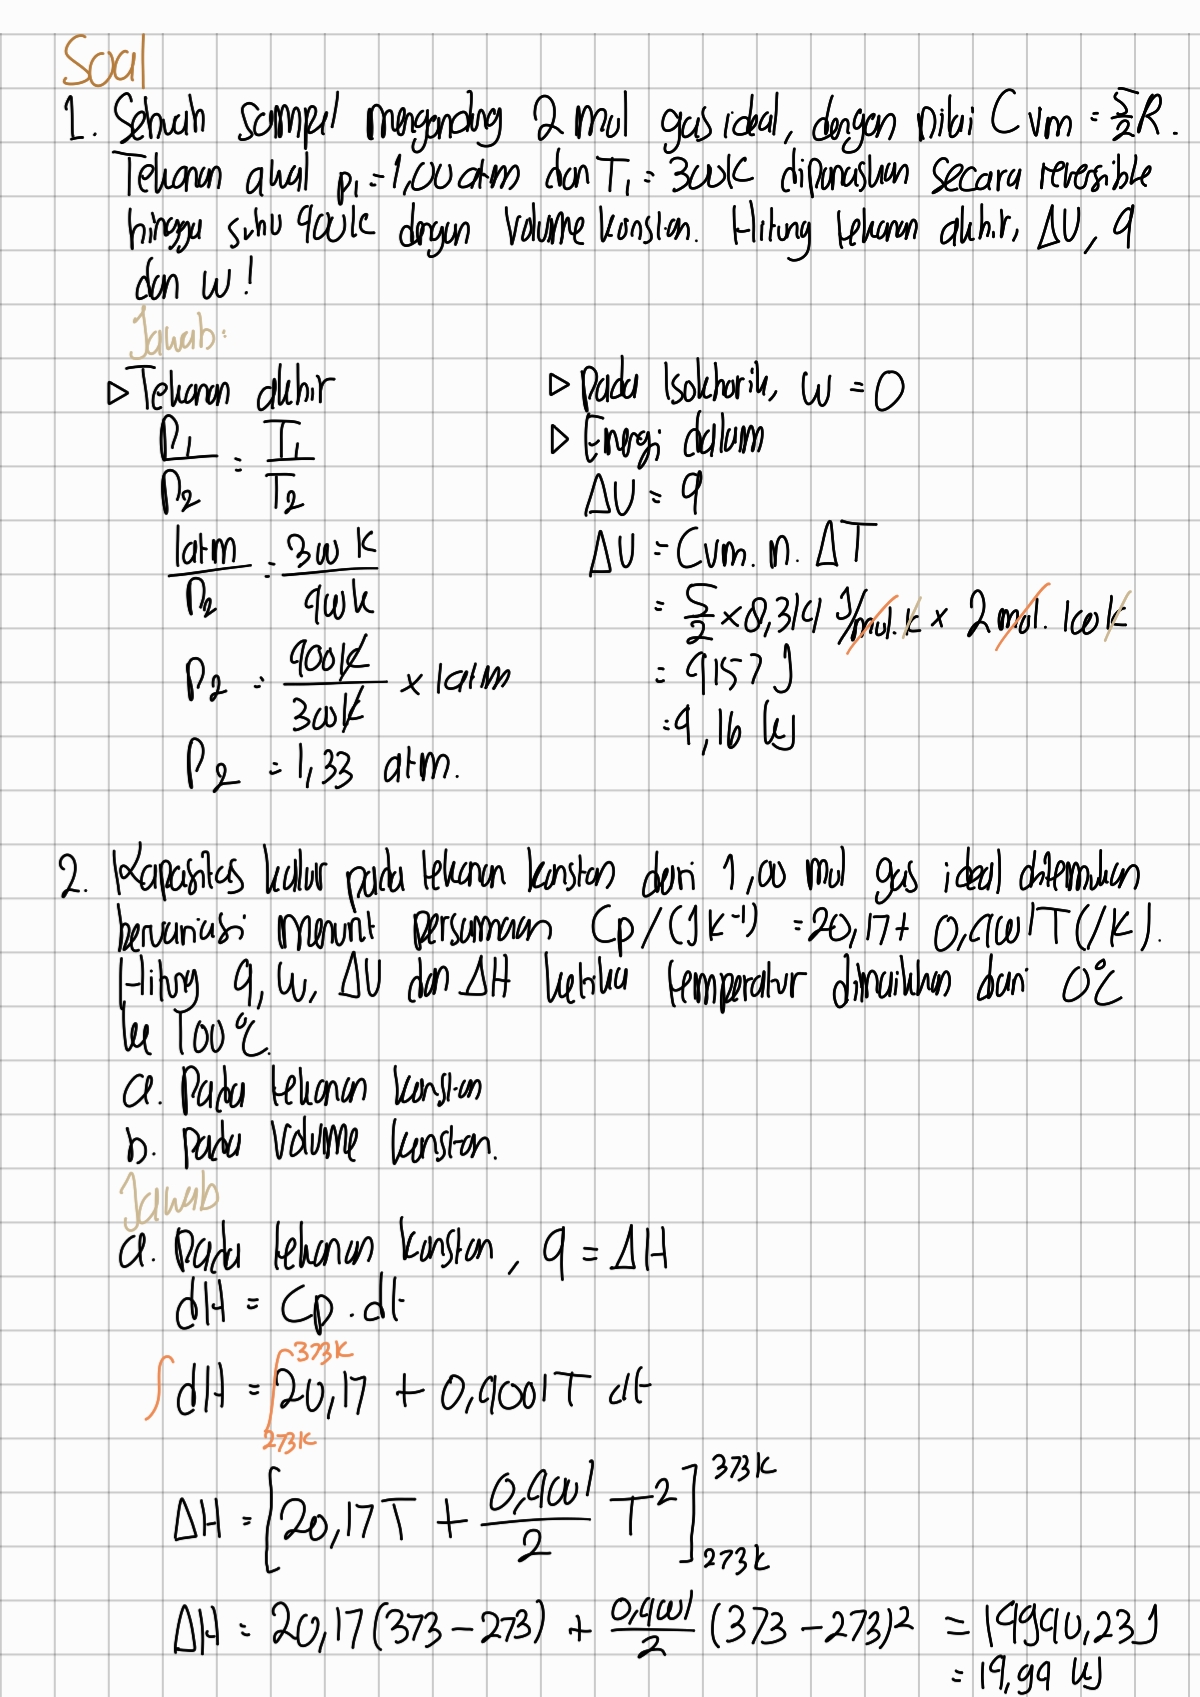 Soal
1. Sebuah sampel mengandung 2 mol gas ideal, dengan nilai Cvm = 5/2 R.
Tekanan awal p₁ = 1,00 atm dan T₁ = 300K dipanaskan secara reversible
hingga suhu 400K dengan volume konstan. Hitung tekanan akhir, ΔU, q
dan w!
Jawab:
▷ Tekanan akhir
P₁/P₂ = T₁/T₂
1atm/P₂ = 300 K/400K
P₂ = 400K/300K × 1atm
P₂ = 1,33 atm.
▷ Pada Isokhorik, w = 0
▷ Energi dalam
ΔU = q
ΔU = Cvm. n. ΔT
= 5/2 × 8,314 J/mol.K × 2 mol. 100K
= 4157 J
= 4,16 kJ
2. Kapasitas kalor pada tekanan konstan dari 1,00 mol gas ideal ditemukan
bervariasi menurut persamaan Cp/(JK⁻¹) = 20,17 + 0,4001T(/K).
Hitung q, w, ΔU dan ΔH ketika temperatur dinaikkan dari 0°C
ke 100°C.
a. Pada tekanan konstan
b. Pada Volume konstan.
Jawab
a. Pada tekanan konstan, q = ΔH
dH = Cp . dt
∫ dH = ∫₂₇₃K³⁷³K 20,17 + 0,4001T dt
ΔH = [20,17T + 0,4001/2 T²]₂₇₃K³⁷³K
ΔH = 20,17(373 – 273) + 0,4001/2 (373 – 273)² = 19940,23J
= 19,94 kJ